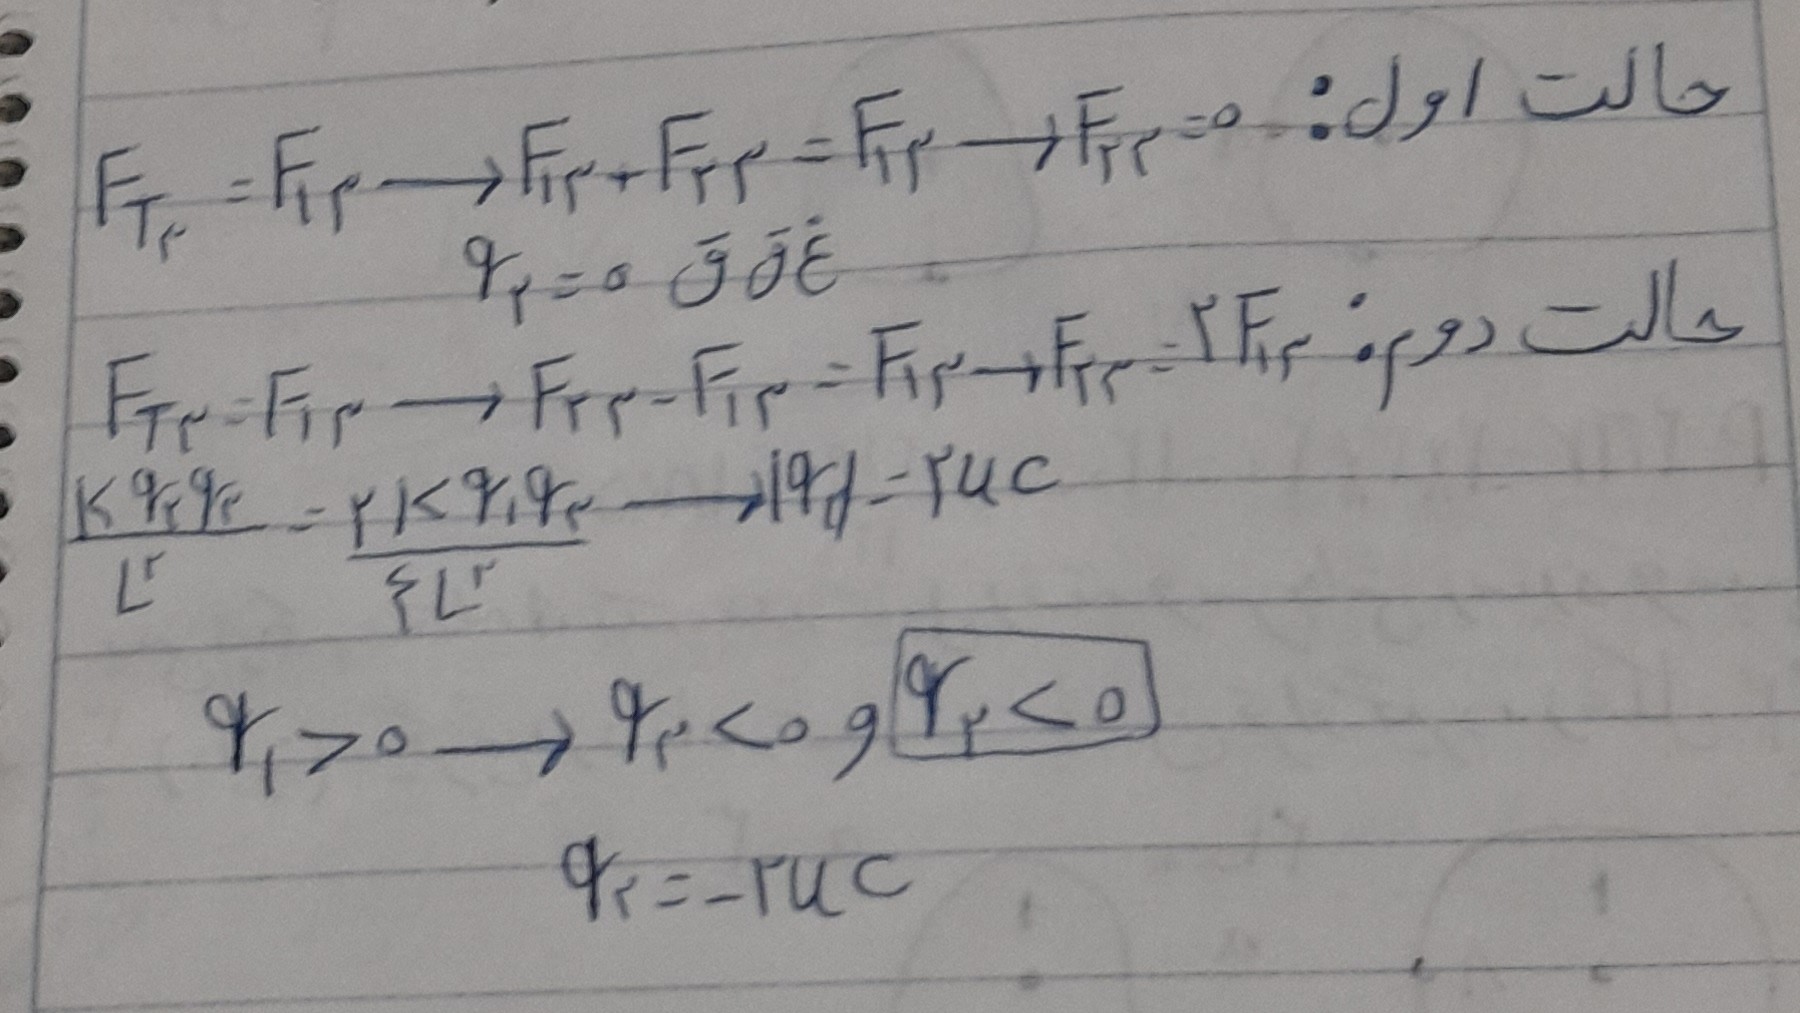 حالت اول: F_T۳ = F_۱۳ → F_۱۳ + F_۲۳ = F_۱۳ → F_۲۳ = ۰
q_۲ = ۰ غ ق ق
حالت دوم: F_T۳ = F_۱۳ → F_۲۳ - F_۱۳ = F_۱۳ → F_۲۳ = ۲F_۱۳
K q_۲ q_۳ / L^۲ = ۲ K q_۱ q_۳ / ۴L^۲ → |q_۲| = ۲ u c
q_۱ > ۰ → q_۳ < ۰ و q_۲ < ۰
q_۲ = -۲ u c